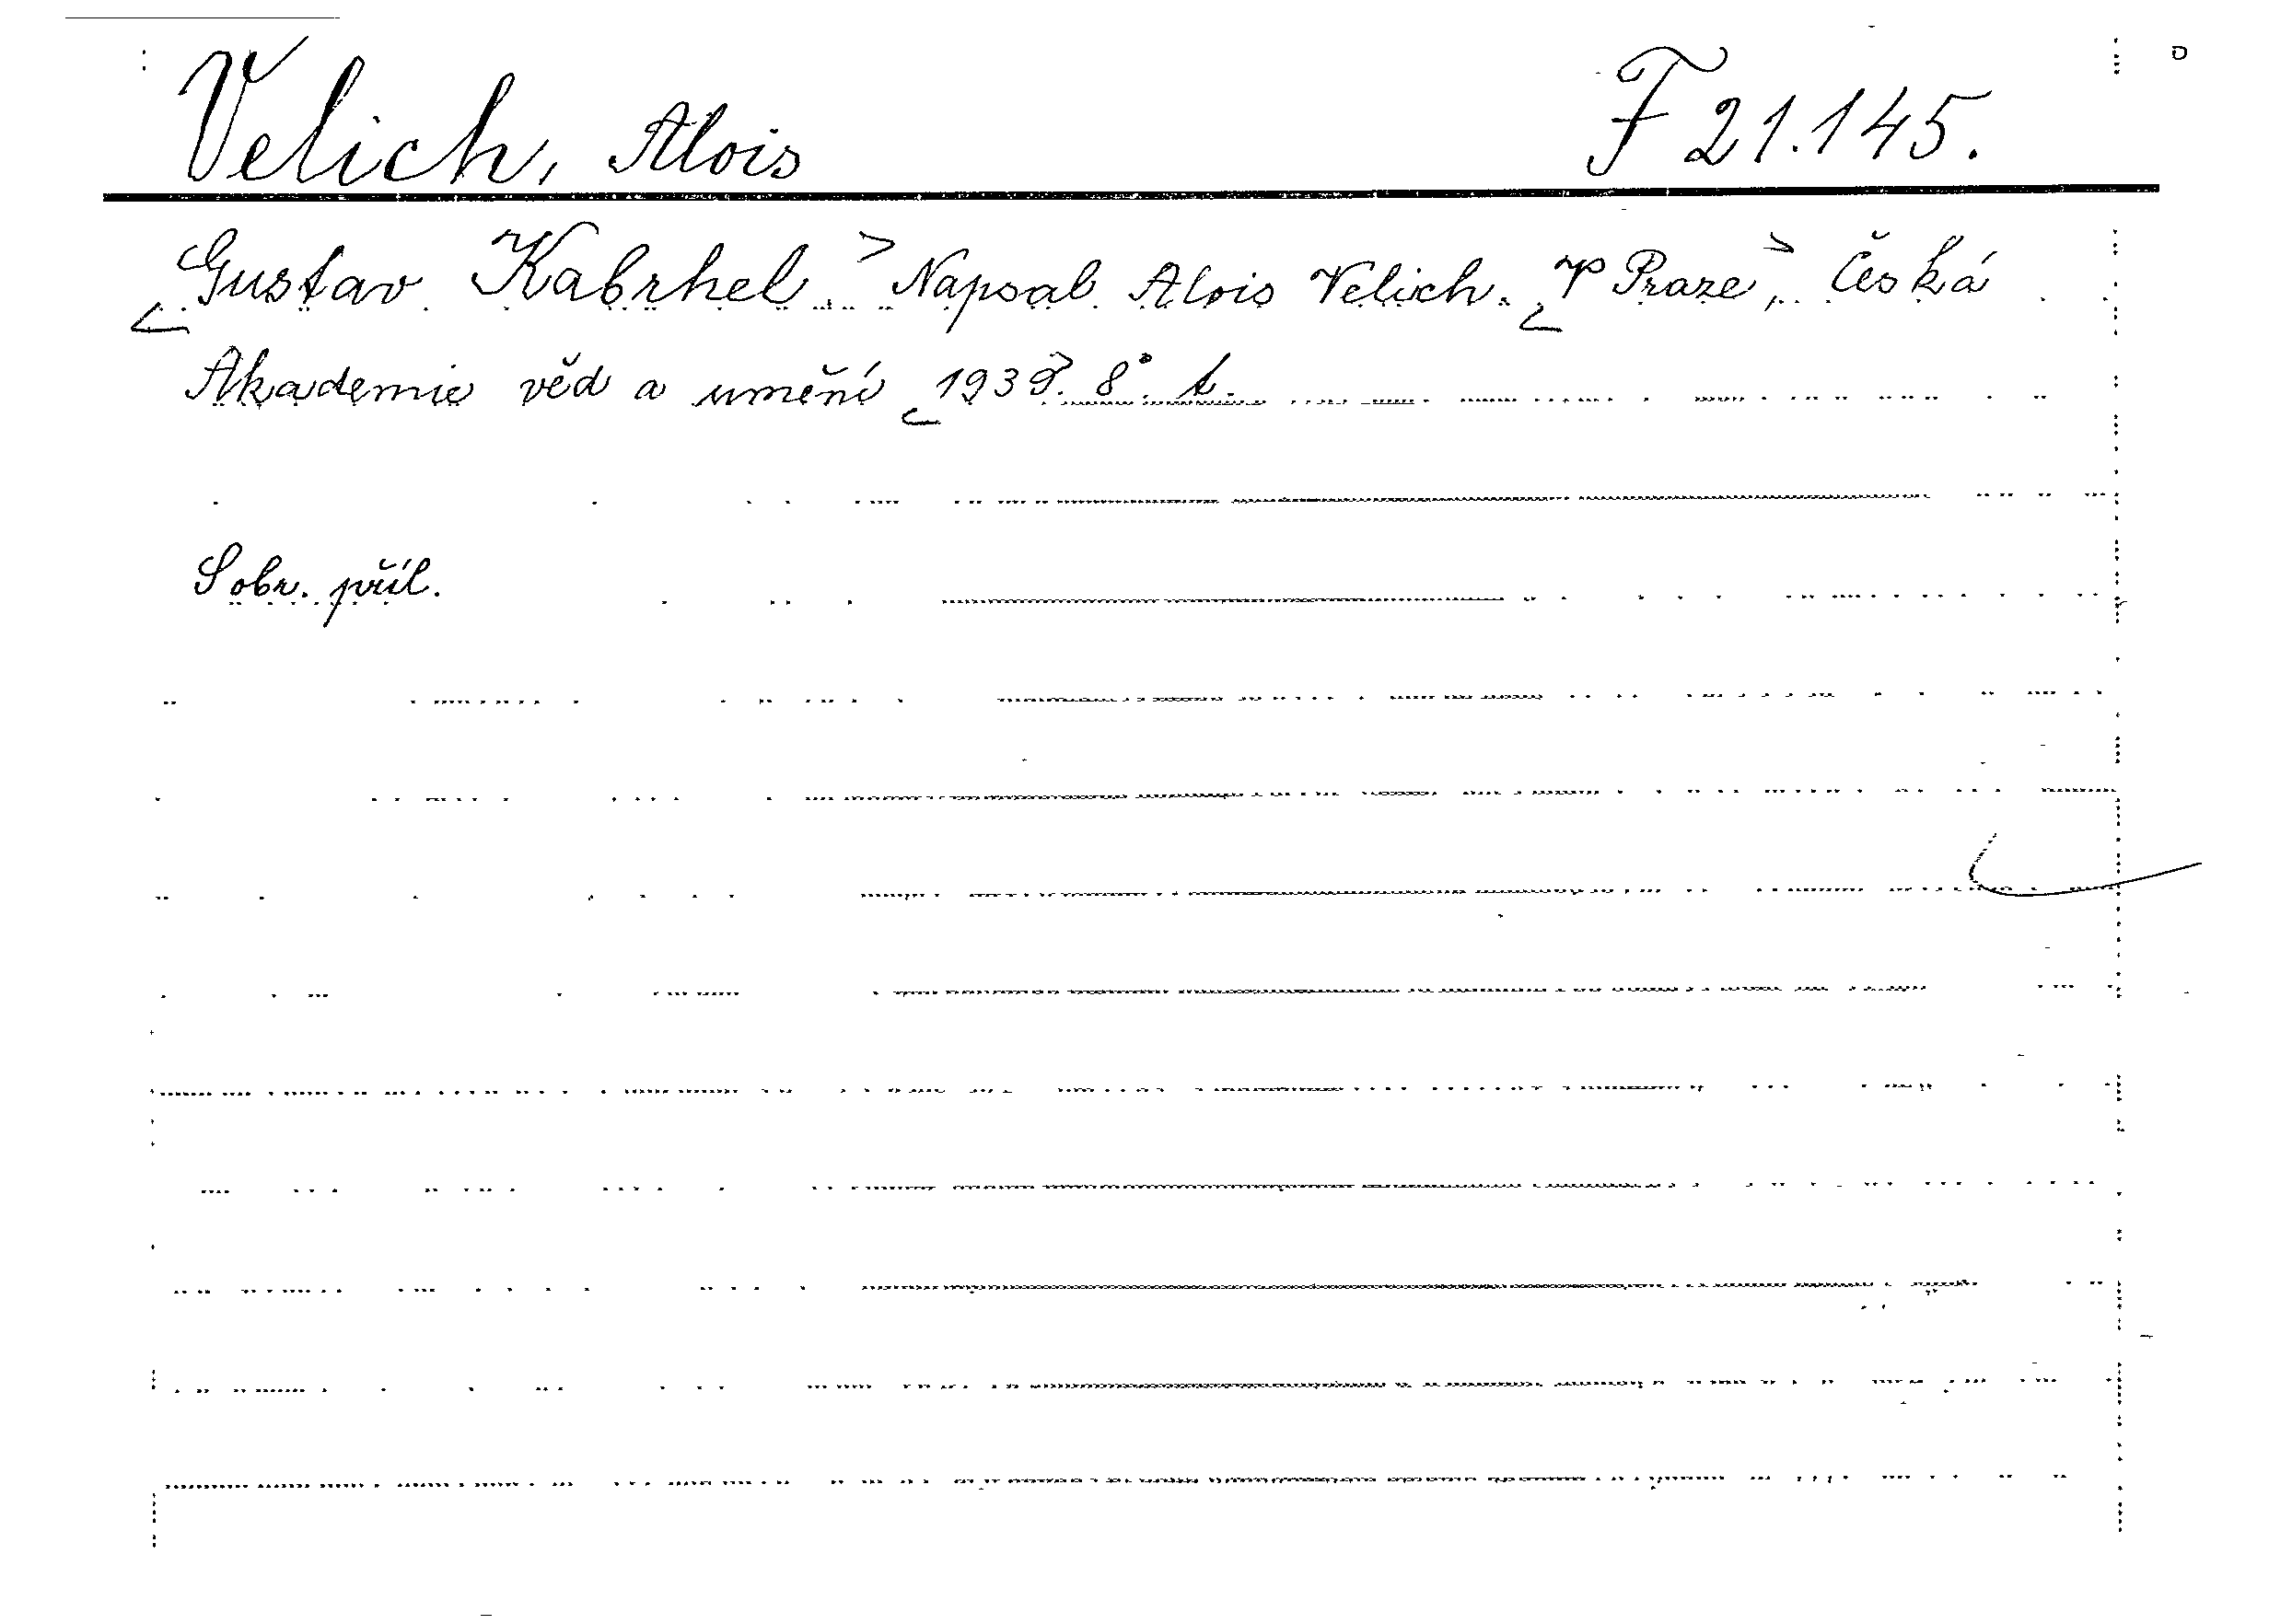 Velich, Alois F 21.145.
<Gustav Kabrhel.> Napsal Alois Velich. <V Praze>, Česká
Akademie věd a umění <1939>. 8°. t.
S obr. příl.